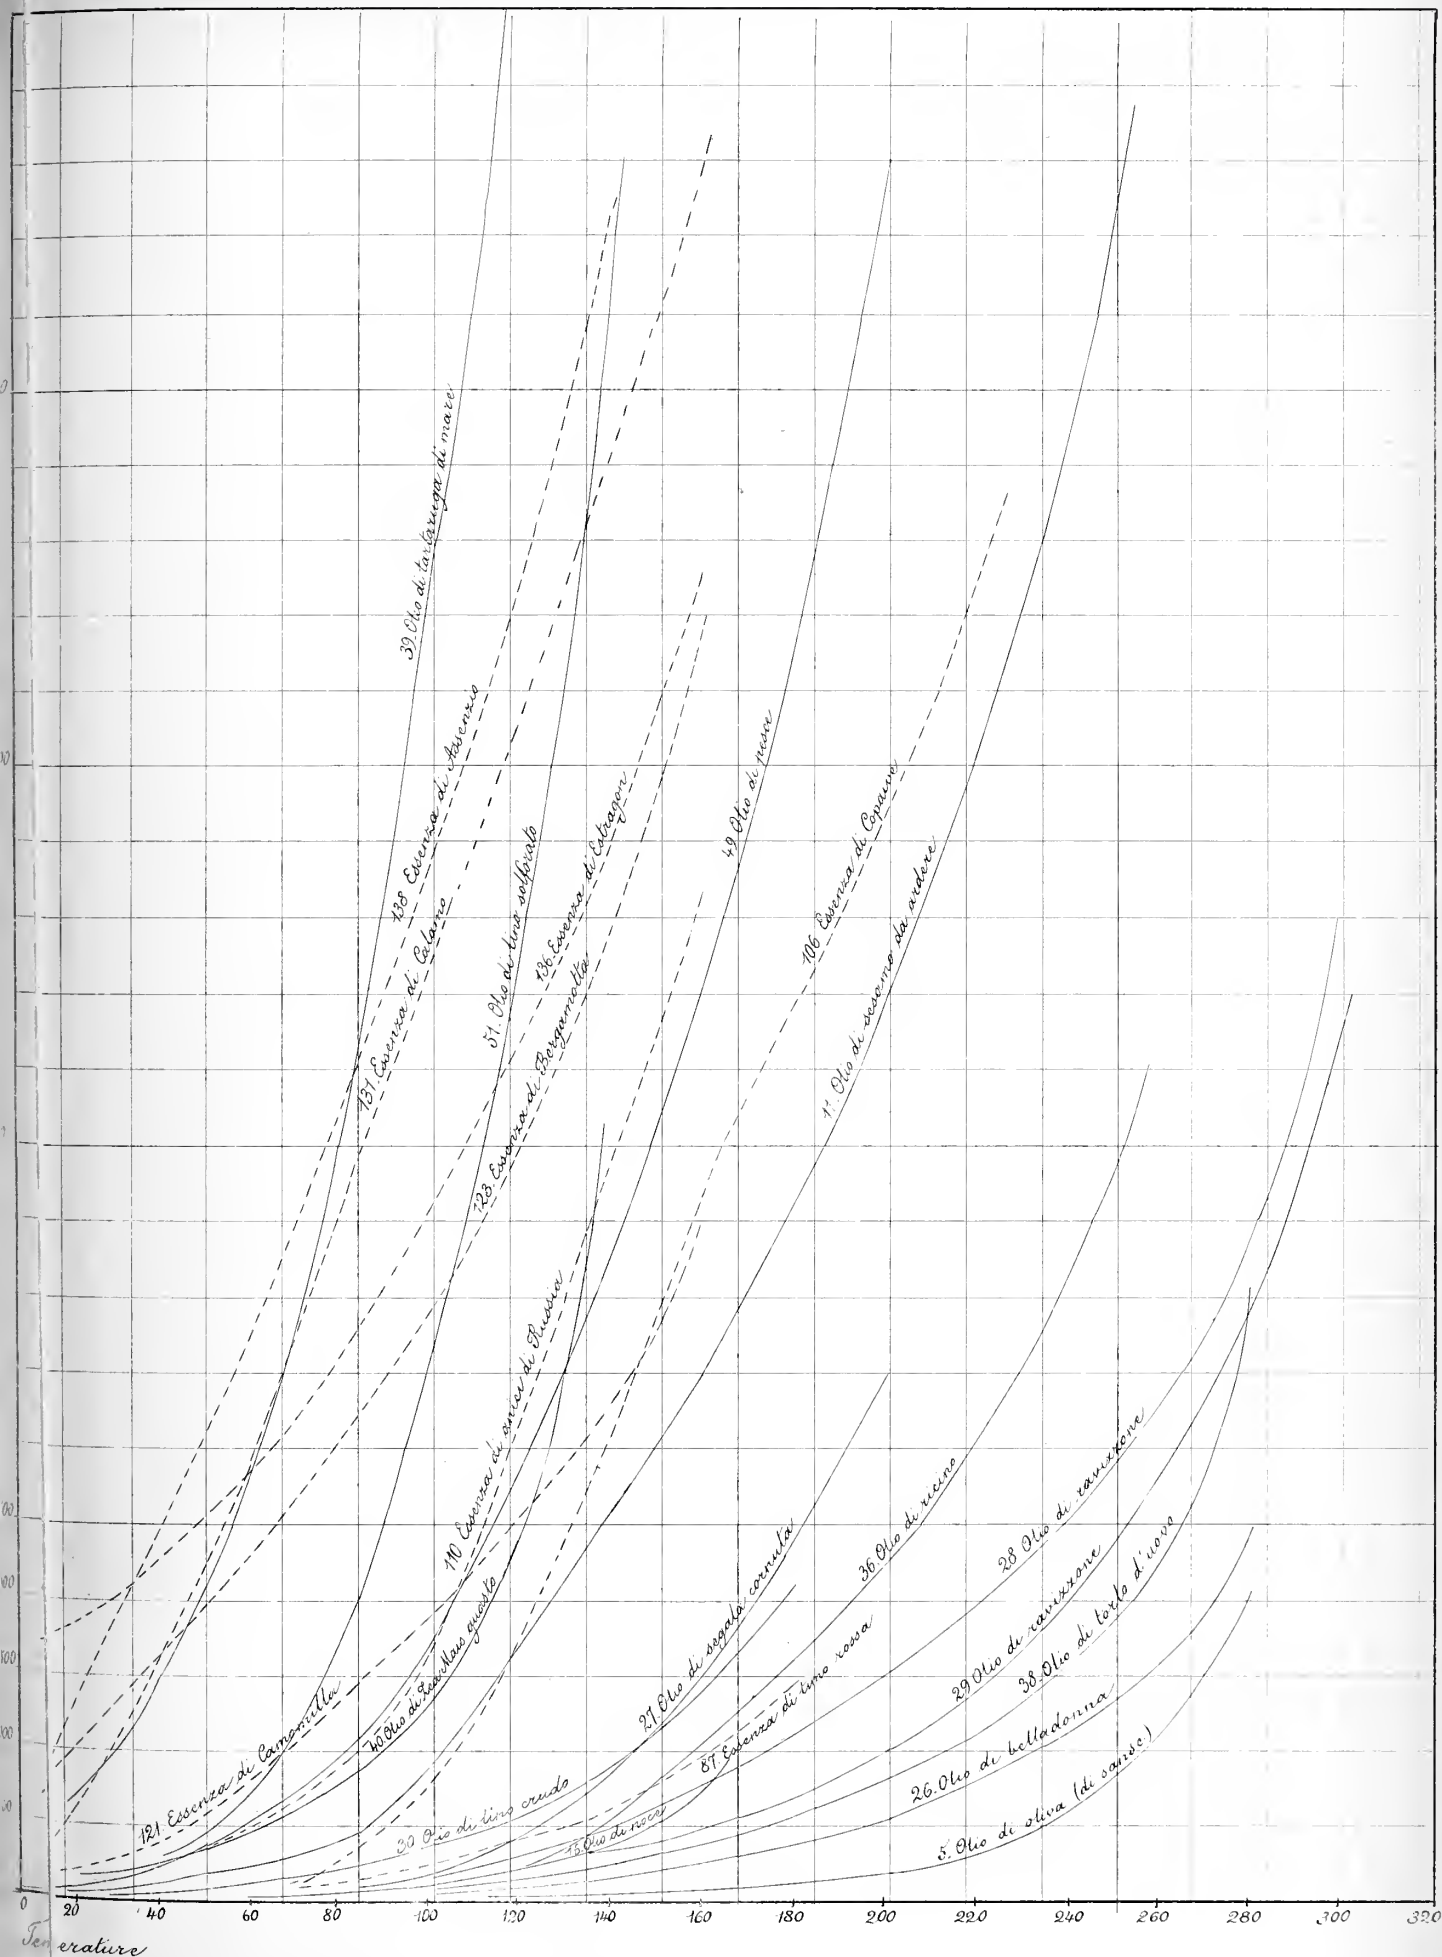 39. Olio di tartaruga di mare
138 Essenza di Assenzio
137. Essenza di Calamo
51. Olio di lino solforato
136. Essenza di Estragon
123. Essenza di Bergamotta
49 Olio di pesce
106 Essenza di Copaive
11. Olio di sesamo da ardere
110 Essenza di anici di Russia
40. Olio di Zea Mais guasto
121. Essenza di Camomilla
30 Olio di lino crudo
15. Olio di noce
27. Olio di segala cornuta
87. Essenza di timo rossa
36. Olio di ricino
28 Olio di ravizzone
29 Olio di ravizzone
38. Olio di torlo d'uovo
26. Olio di belladonna
5. Olio di oliva (di sanse)
0 20 40 60 80 100 120 140 160 180 200 220 240 260 280 300 320
Temperature